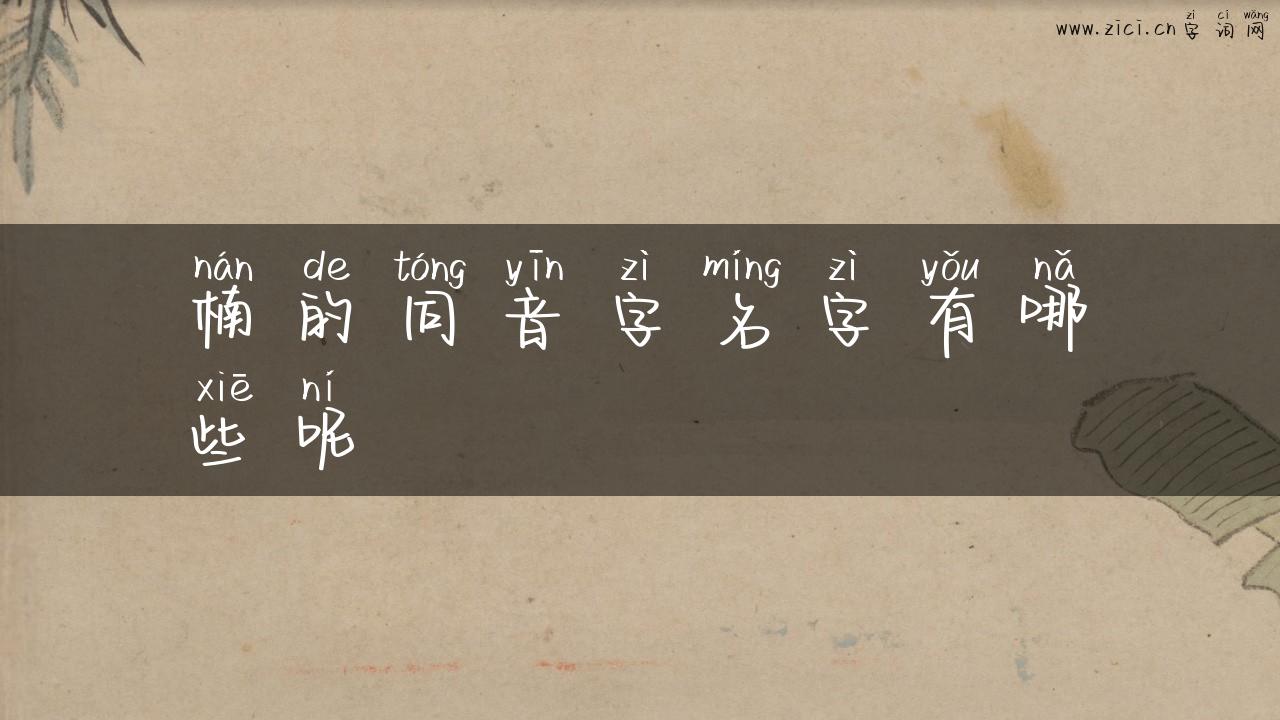 zì cí wǎng
www.zici.cn 字词网
nán de tóng yīn zì míng zì yǒu nǎ
楠的同音字名字有哪
xiē ní
些呢